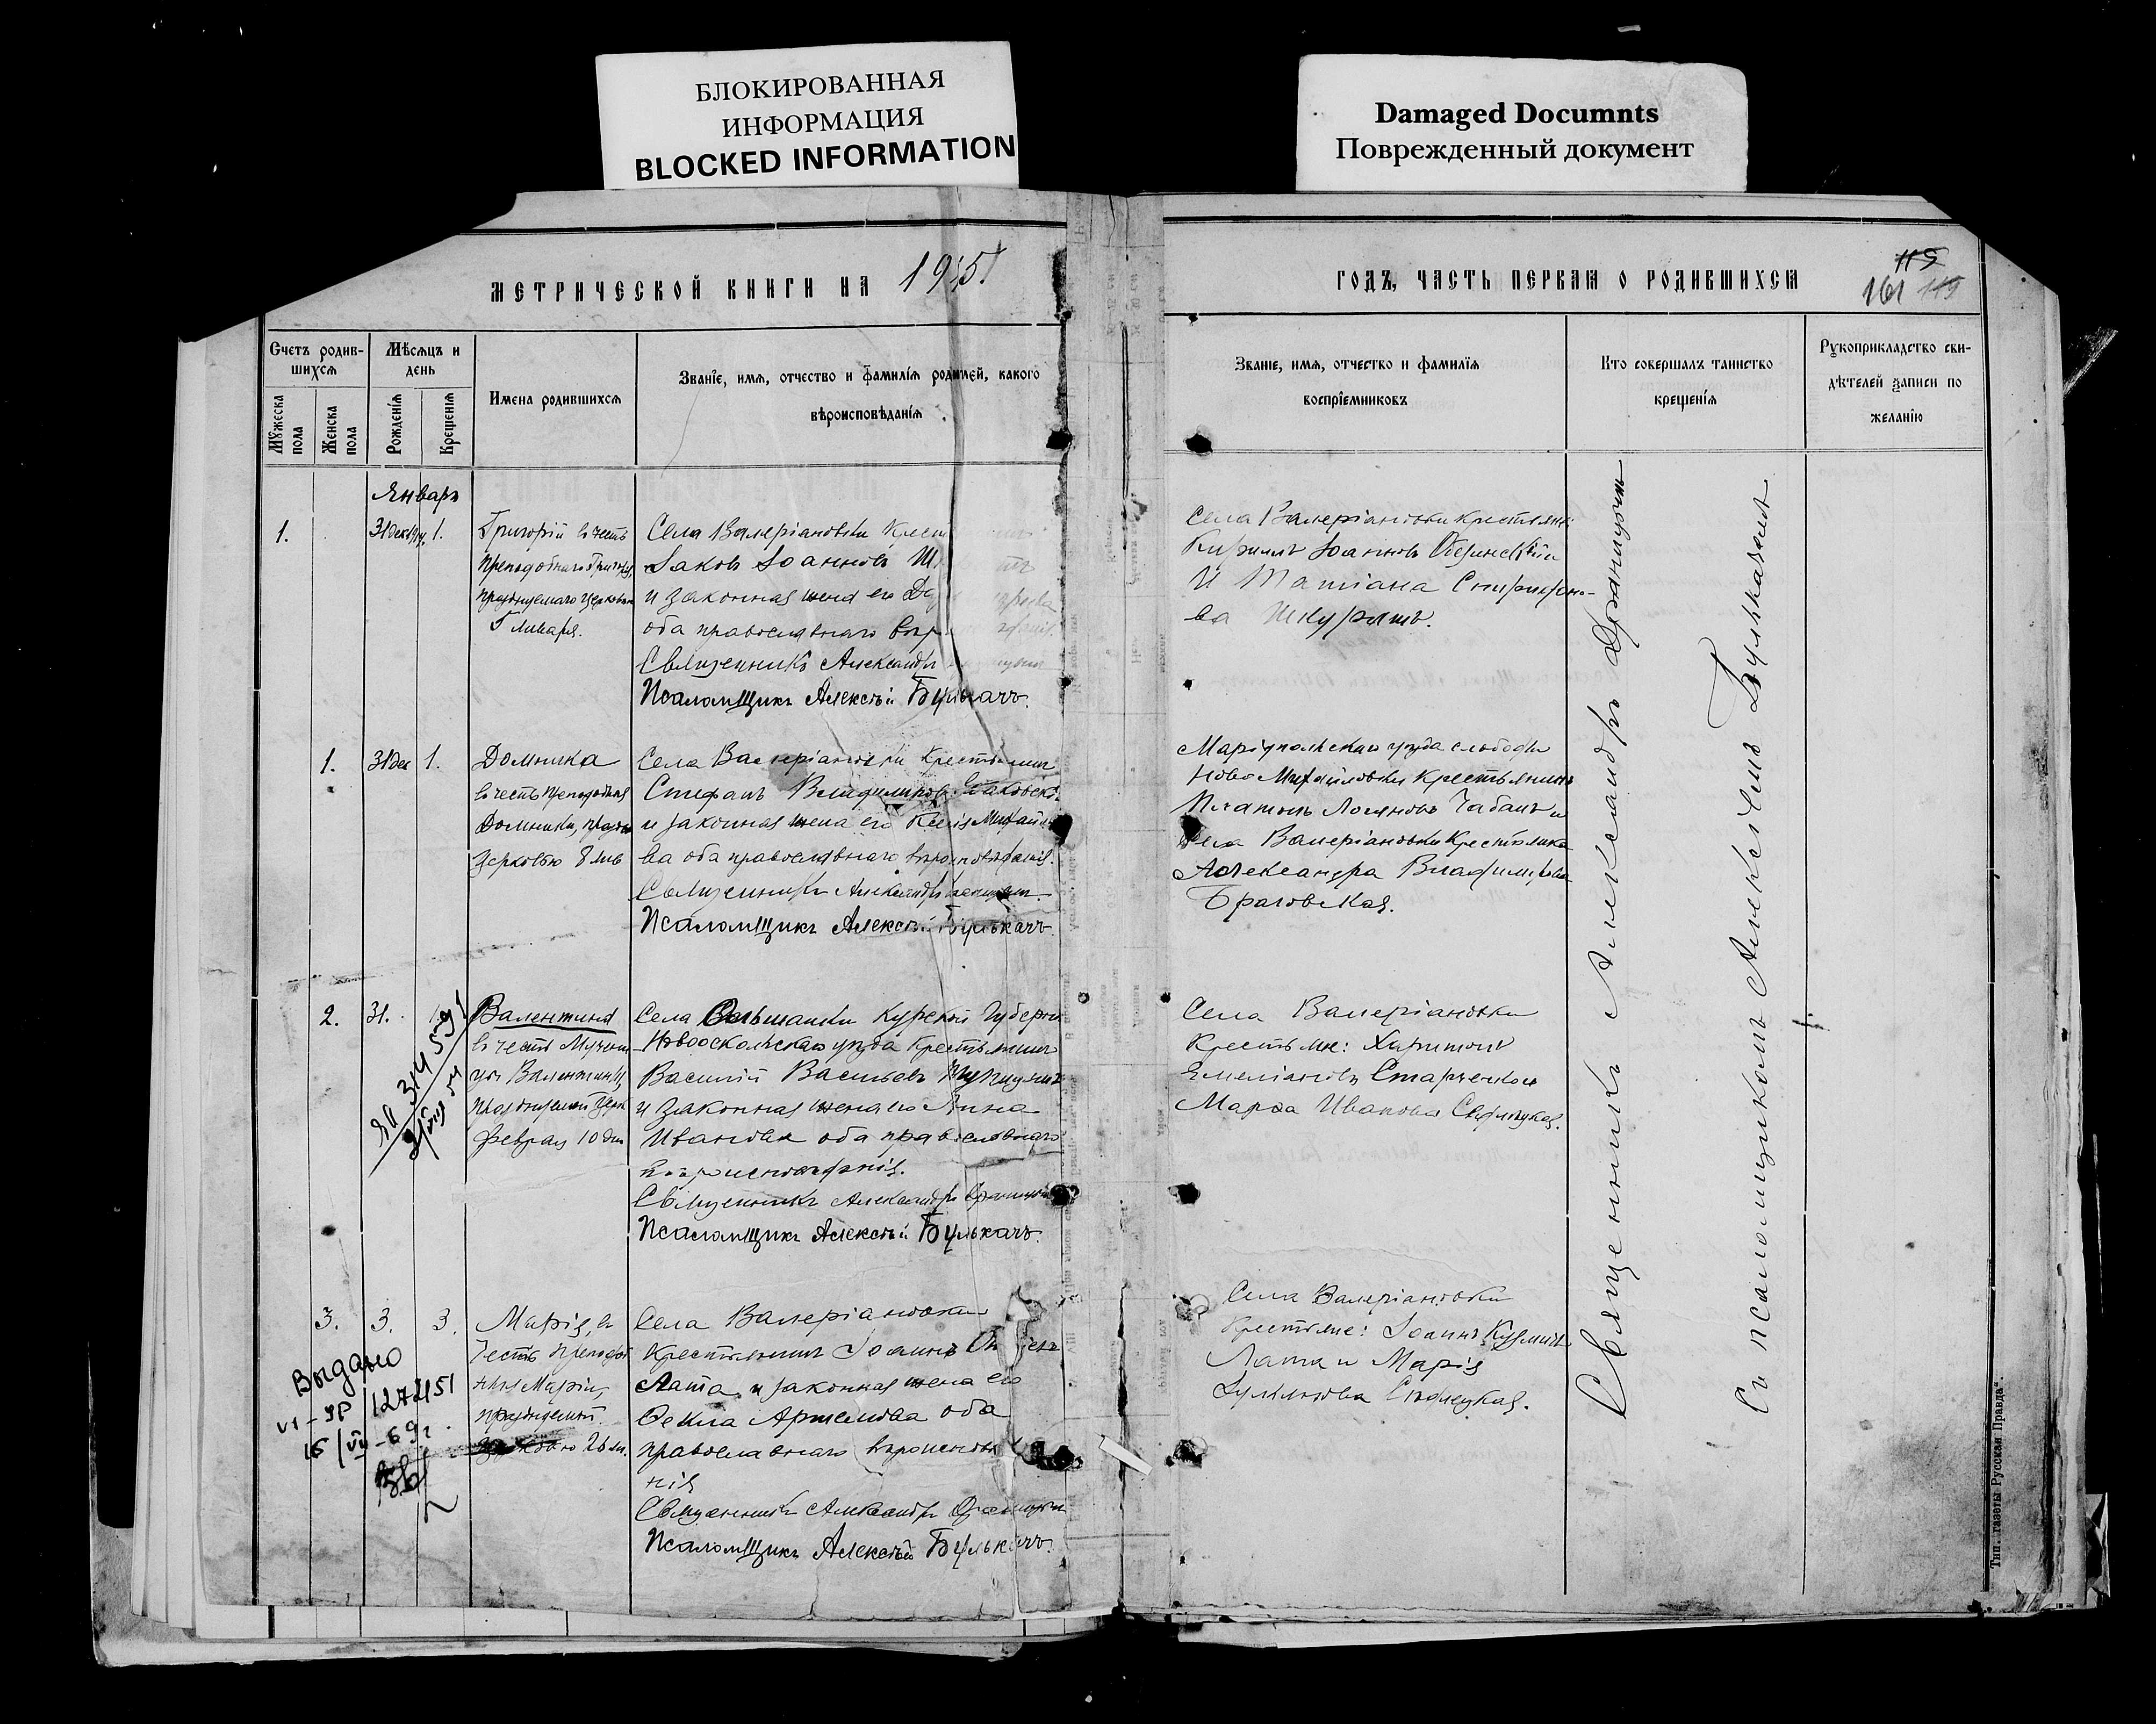 БЛОКИРОВАННАЯ
ИНФОРМАЦИЯ
BLOCKED INFORMATION
Damaged Documnts
Поврежденный документ
МЕТРИЧЕСКОЙ КНИГИ НА 1915
ГОДЪ, ЧАСТЬ ПЕРВАЯ О РОДИВШИХСЯ
115
161 115
Счетъ родив-
шихся
Мужеска
пола
Женска
пола
Мѣсяцъ и
день
Рожденія
Крещенія
Имена родившихся
Званіе, имя, отчество и фамилія родителей, какого
вѣроисповѣданія
Званіе, имя, отчество и фамилія
воспріемниковъ
Кто совершалъ таинство
крещенія
Рукоприкладство сви-
дѣтелей записи по
желанію
Январь
1.
31 дек 1914. 1.
Григорій въ честь
Преподобнаго
празднуемаго церковью
Января.
Села Валеріановки
Іаковъ Іоанновъ
и законная жена его
оба православнаго
Священникъ Александръ
Псаломщикъ Алексѣй Булькачъ.
Села Валеріановки крестьяне:
Кириллъ Іоанновъ
и Татіана Спиридоно-
ва Шкурятъ.
1. 31 дек 1.
Домника
въ честь преподобныя
Домники,
церковью 8 янв
Села Валеріановки крестьянинъ
Стефанъ Владиміровъ
и законная жена его Ксенія Михайло-
ва оба православнаго вѣроисповѣданія.
Священникъ Александръ
Псаломщикъ Алексѣй Булькачъ.
Маріупольскаго уѣзда слободы
Ново Михайловки крестьянинъ
Платонъ Чабанъ и
Села Валеріановки крестьянка
Александра Владимірова
Браговская.
2. 31. 1.
Валентина
въ честь Мучени
цы Валентины,
празднуемой церк
Февраля 10 дня
ЯЦ 314559
Села Ольшанки Курской губерніи
Новооскольскаго уѣзда крестьянинъ
Василій Васильевъ
и законная жена его Анна
Ивановна оба православнаго
вѣроисповѣданія.
Священникъ Александръ
Псаломщикъ Алексѣй Булькачъ.
Села Валеріановки
Крестьяне: Харитонъ
Емеліановъ Старченко и
Марѳа Иванова
3. 3. 3.
Марія, въ
честь преподоб
ныя Маріи,
празднуемой
церковью 26 ян.
Выдано
VI-ЯР 127451
15/VII-69г.
Села Валеріановки
крестьянинъ Іоаннъ
Лата и законная жена его
Ѳекла Артемова оба
православнаго вѣроисповѣда
нія
Священникъ Александръ
Псаломщикъ Алексѣй Булькачъ.
Села Валеріановки
Крестьяне: Іоаннъ Кузминъ
Лата и Марія
Священникъ Александръ
Съ псаломщикомъ Алексѣемъ Булькачемъ
Тип. газеты „Русская Правда“.